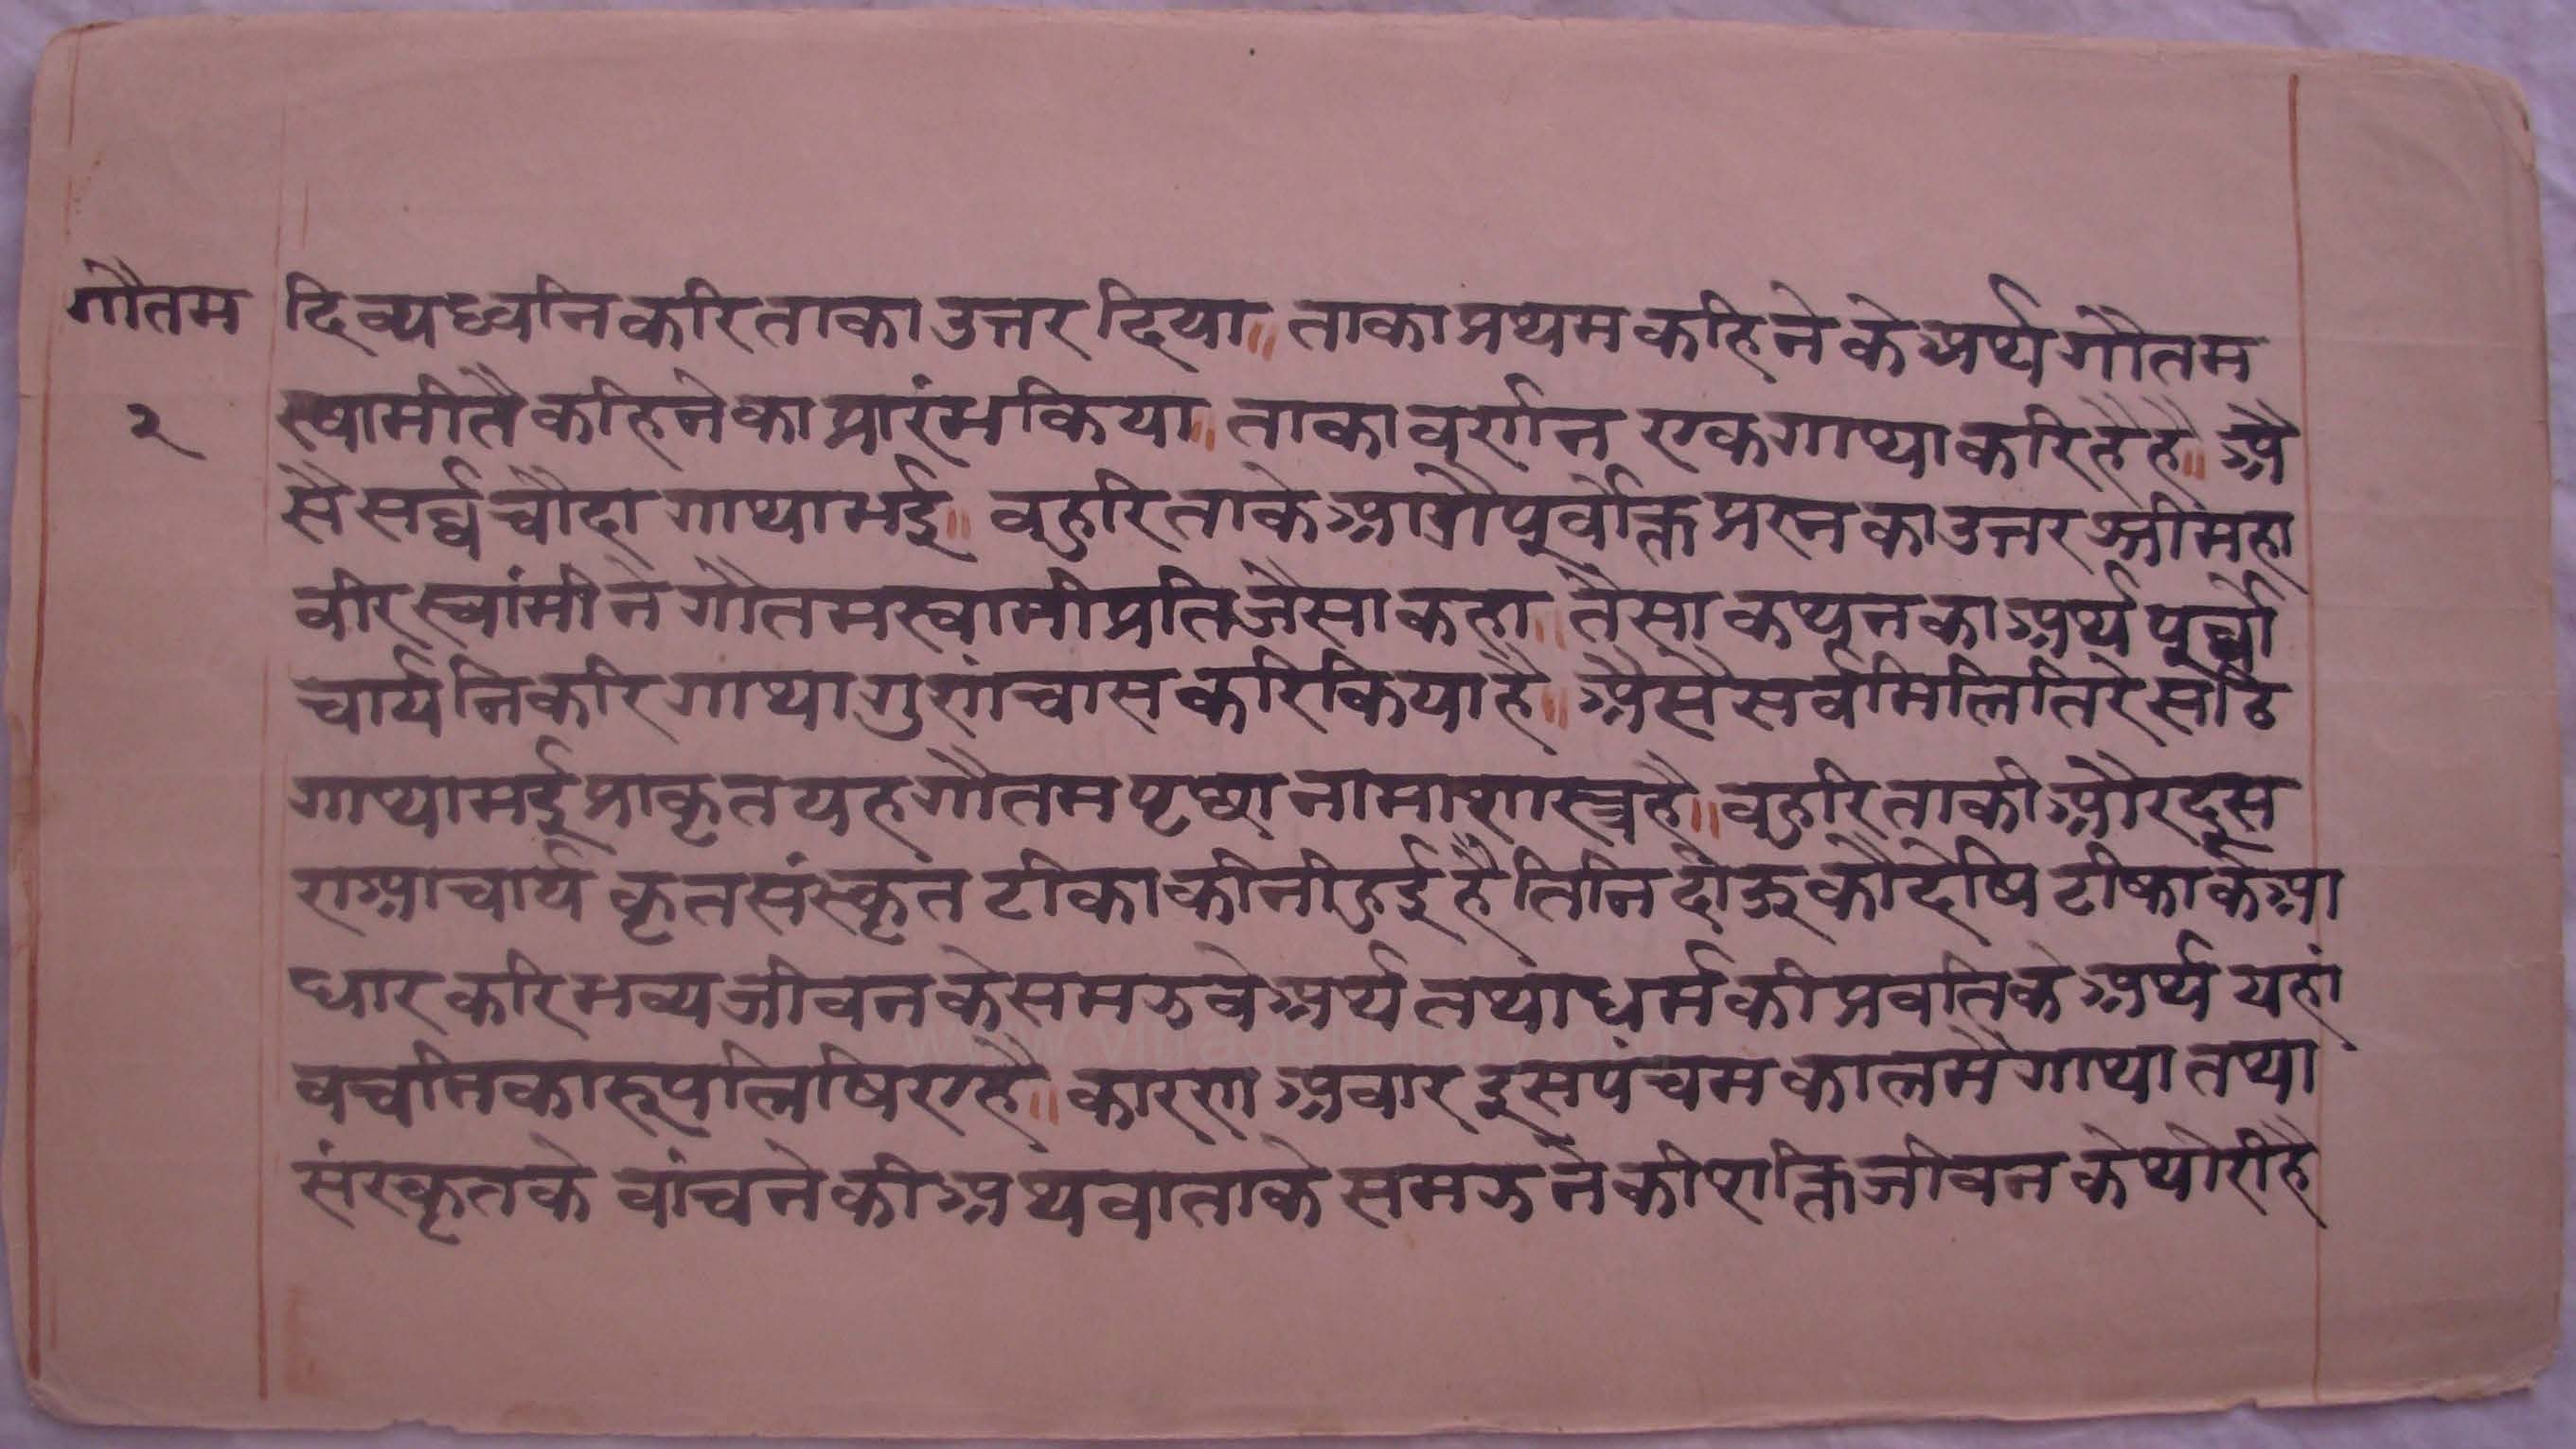 गौतम दिव्यध्वनि करि ताका उत्तर दिया॥ ताका प्रथम कहिने के अर्थ गौतम
२ स्वामी तै कहिने का प्रारंभ किया॥ ताका वर्णन एक गाथा करि है है॥ अै
सै सर्व्व चौदा गाथा भई॥ बहुरि ताके आगै पूर्वोक्त प्रस्न का उत्तर श्री महा
वीर स्वांमी नै गौतम स्वामी प्रति जैसा कहा॥ तैसा कथन का अर्थ पूर्व्वा
चार्य नि करि गाथा गुणंचास करि किया है॥ अैसै सर्व मिलि तिरेसठि
गाथा भई प्राकृत यह गौतम पृछा नामा शास्त्र है॥ बहुरि ताकी और दूस
रा आचार्य कृत संस्कृत टीका कीनी हुई है तिनि दोऊ कौ देषि टीका के आ
धार करि भव्य जीवन के समझवे अर्थ तथा धर्म की प्रवर्ति के अर्थ यहां
वचनिका रूप लिषिए है॥ कारण अवार इस पंचम काल मै गाथा तथा
संस्कृत के वांचने की अथवा ताके समझने की शक्ति जीवन के थोरी है